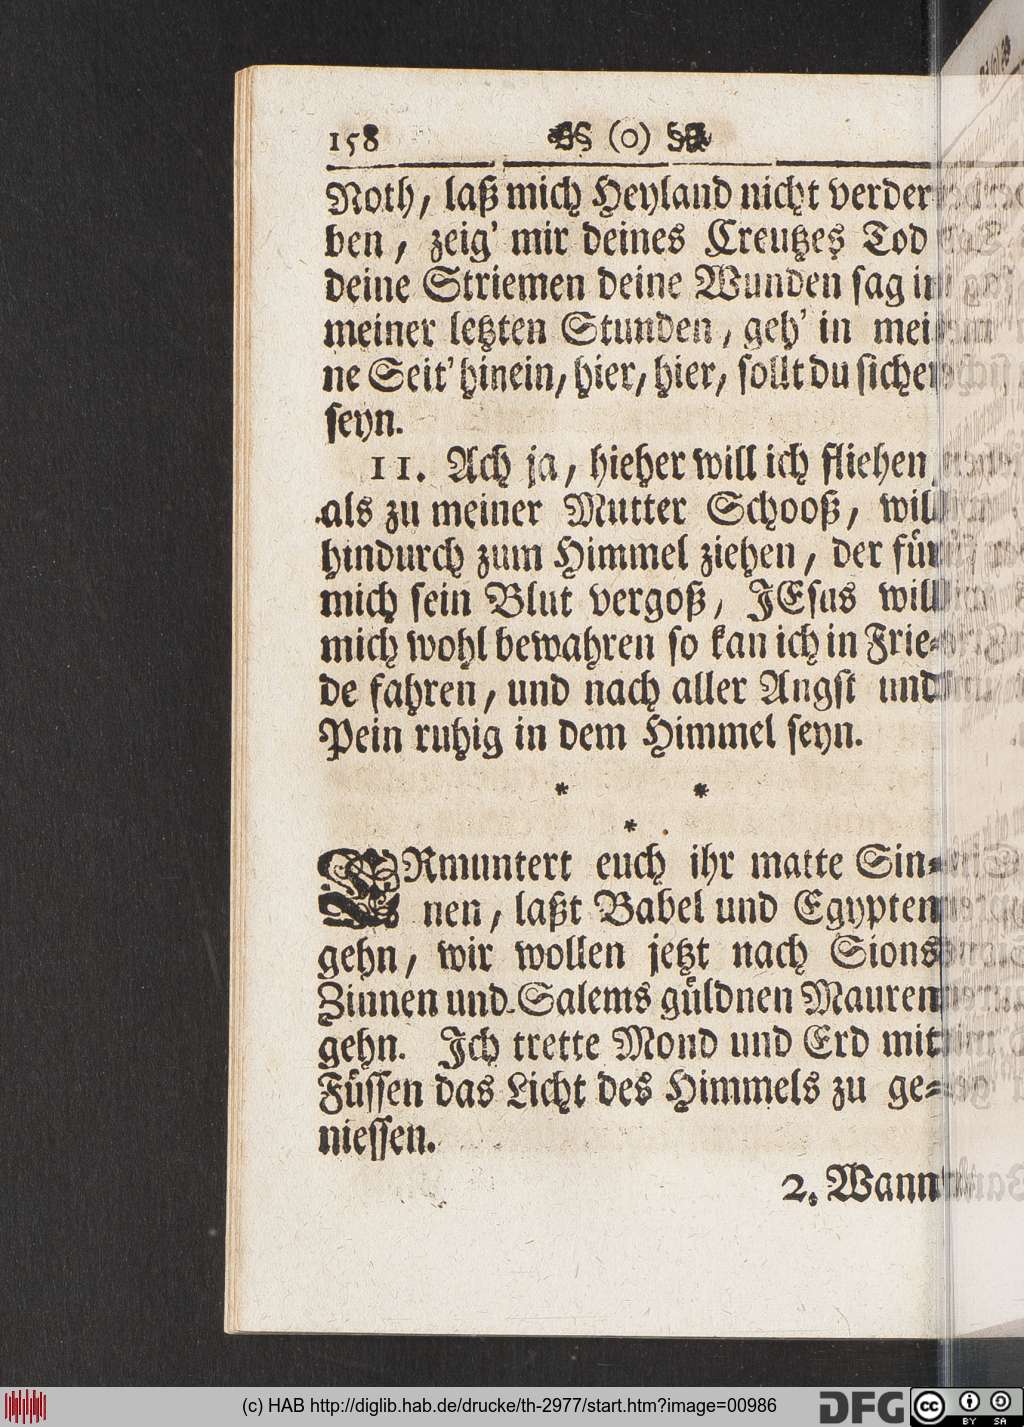 158 (0)
Noth, laß mich Heyland nicht verder
ben, zeig' mir deines Creutzes Tod
deine Striemen deine Wunden sag in
meiner letzten Stunden, geh' in mei
ne Seit' hinein, hier, hier, sollt du sicher
seyn.
11. Ach ja, hieher will ich fliehen
als zu meiner Mutter Schooß, will
hindurch zum Himmel ziehen, der für
mich sein Blut vergoß, JEsus will
mich wohl bewahren so kan ich in Frie-
de fahren, und nach aller Angst und
Pein ruhig in dem Himmel seyn.
* *
*
ERmuntert euch ihr matte Sin-
nen, laßt Babel und Egypten
gehn, wir wollen jetzt nach Sions
Zinnen und Salems güldnen Mauren
gehn. Ich trette Mond und Erd mit
Füssen das Licht des Himmels zu ge-
niessen.
2. Wann
(c) HAB http://diglib.hab.de/drucke/th-2977/start.htm?image=00986
DFG
cc BY SA